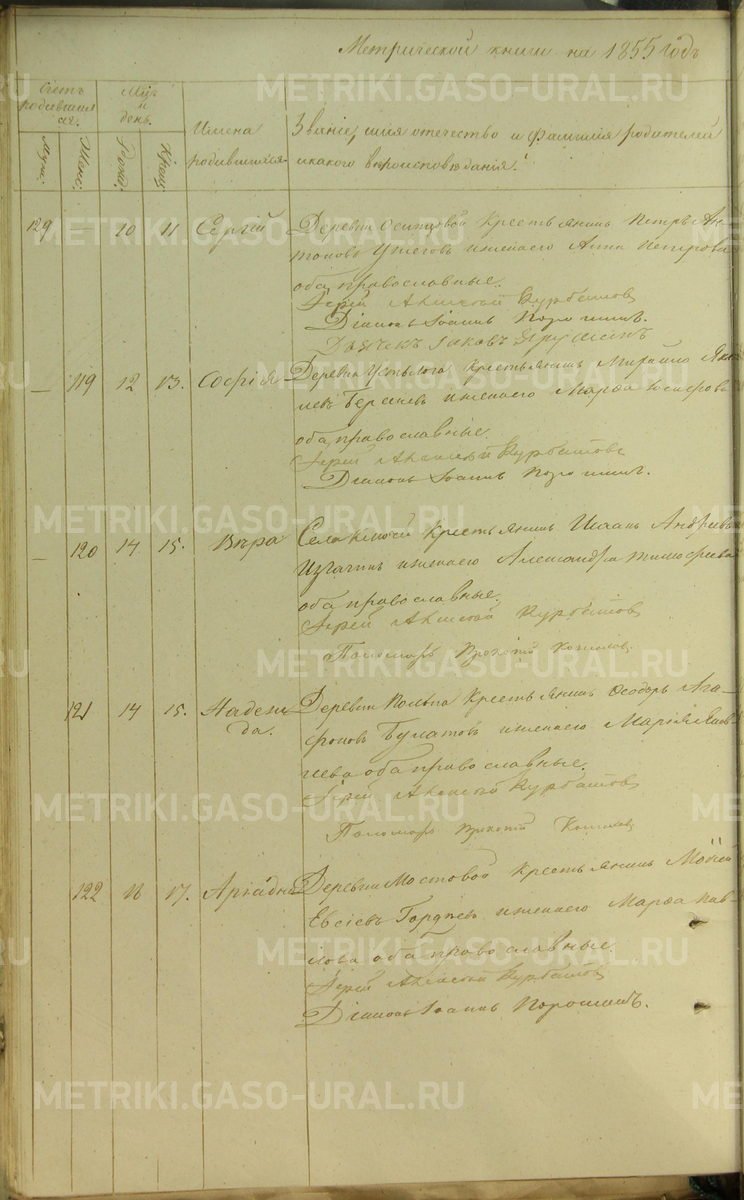 Метрической книги на 1855 годъ
Счетъ родившихся
Мѣс. и день.
Имена родившихся
Званіе, имя отечество и фамилія родителей
и какого вѣроисповѣданія.
Муж. Жен. Рожд. Крещ.
129 — 10 11 Сергій Деревни Осиповой Крестьянинъ Петръ Ан-
тоновъ и жена его Анна Петрова
оба православные.
Іерей Алексѣй Курбатовъ
Діаконъ Іоаннъ Порошинъ.
Дьячекъ Іаковъ
— 119 12 13. Софія Деревни Крестьянинъ Михаилъ Яков-
левъ Берсеневъ и жена его Марѳа
оба православные.
Іерей Алексѣй Курбатовъ
Діаконъ Іоаннъ Порошинъ.
— 120 14 15. Вѣра Села Крестьянинъ Иванъ Андреевъ
и жена его Александра Тимофеева
оба православные.
Іерей Алексѣй Курбатовъ
Пономарь
121 14 15. Надеж-
да. Деревни Крестьянинъ Ѳеодоръ Ага-
фоновъ Булатовъ и жена его Марія
оба православные.
Іерей Алексѣй Курбатовъ
Пономарь
122 16 17. Аріадна Деревни Мостовой Крестьянинъ Моисей
Евсіевъ Гордѣевъ и жена его Марѳа Пав-
лова оба православные.
Іерей Алексѣй Курбатовъ
Діаконъ Іоаннъ Порошинъ.
METRIKI.GASO-URAL.RU